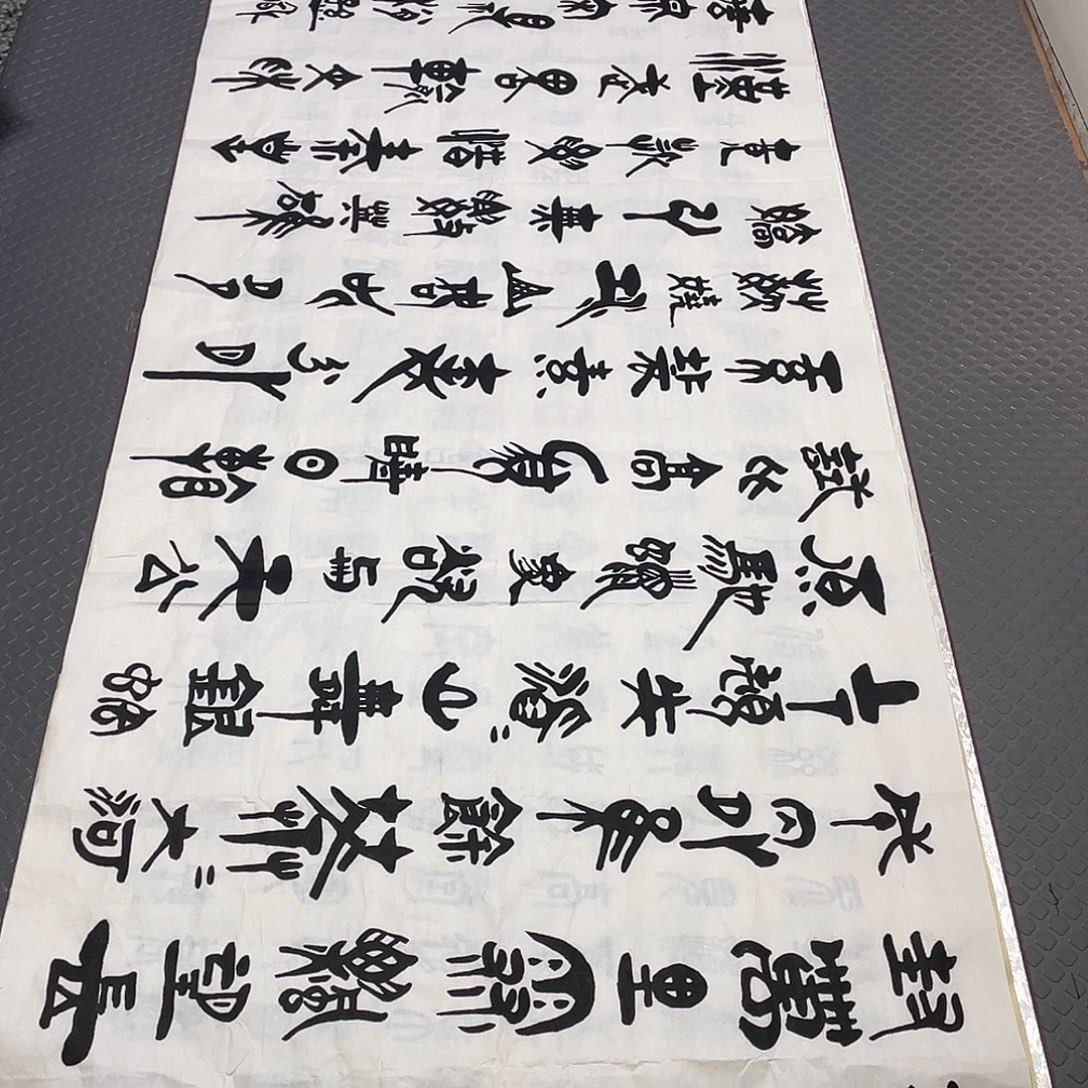 封萬里雪飄望長
城内外惟餘莽〻大河
上下頓失滔〻山舞銀蛇
原馳蠟象欲與天公
試比高須晴日看
紅裝素裹分外
妖嬈江山如此多
嬌引無數英雄
競折腰惜秦皇
漢武略輸文采